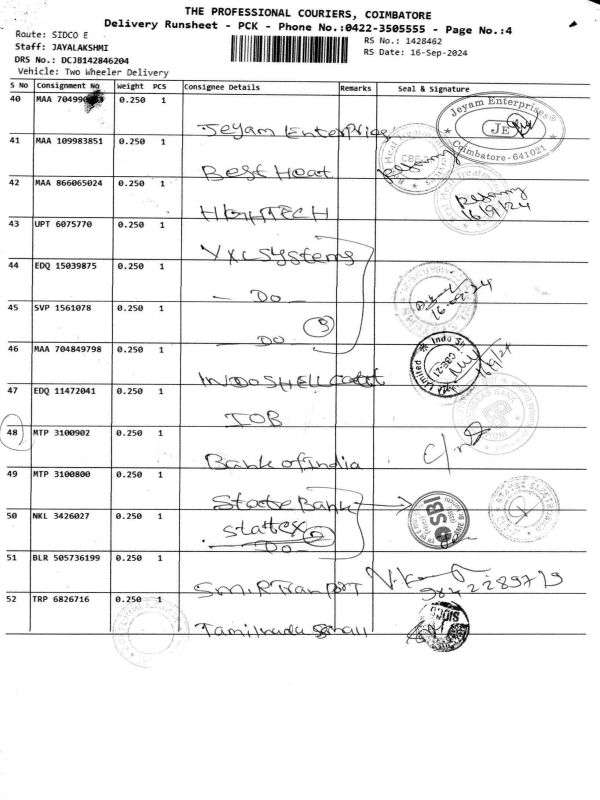 THE PROFESSIONAL COURIERS, COIMBATORE
Delivery Runsheet - PCK - Phone No.:0422-3505555 - Page No.:4
Route: SIDCO E
RS No.: 1428462
Staff: JAYALAKSHMI
RS Date: 16-Sep-2024
DRS No.: DCJB142846204
Vehicle: Two Wheeler Delivery
S No Consignment No Weight PCS Consignee Details Remarks Seal & Signature
40 MAA 0.250 1
Jeyam Enterprise
Jeyam Enterprises®
JE
Coimbatore-641021
41 MAA 109983851 0.250 1
Best Heat
CBE
42 MAA 866065024 0.250 1
HIGHTECH
16/9/24
43 UPT 6075770 0.250 1
VXL Systems
44 EDQ 15039875 0.250 1
- Do -
16.09.24
45 SVP 1561078 0.250 1
- Do - 3
46 MAA 704849798 0.250 1
INDOSHELL
Indo Sh
CBE-21
Limited
16/9/24
47 EDQ 11472041 0.250 1
IOB
48 MTP 3100902 0.250 1
Bank of India
49 MTP 3100800 0.250 1
State Bank
SBI
50 NKL 3426027 0.250 1
Statex 2
- Do -
51 BLR 505736199 0.250 1
S.M.R Tranport
9842289719
52 TRP 6826716 0.250 1
Tamilnadu Small
SIDCO